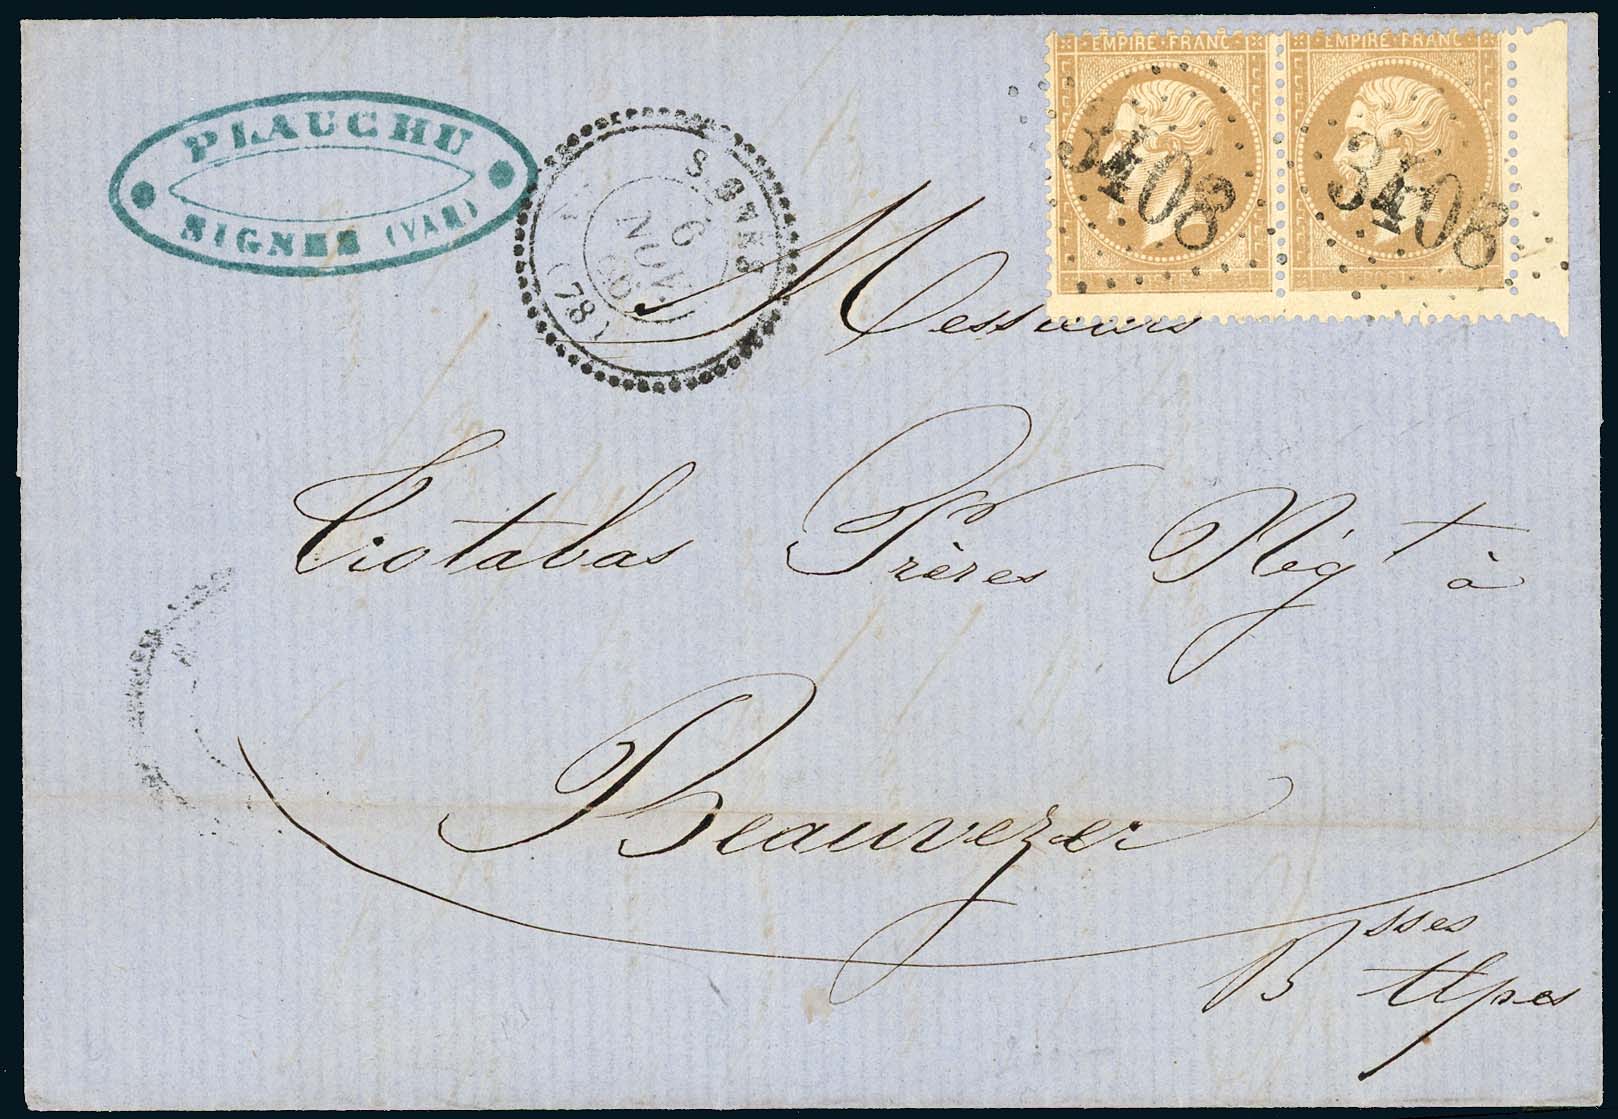 PLAUCHU
SIGNES (VAR)
SIGNES
6
NOV.
(78)
EMPIRE FRANC
EMPIRE FRANC
3408
3408
Messieurs
Trotabas Frères Négt à
Beauvezer
Bsses Alpes